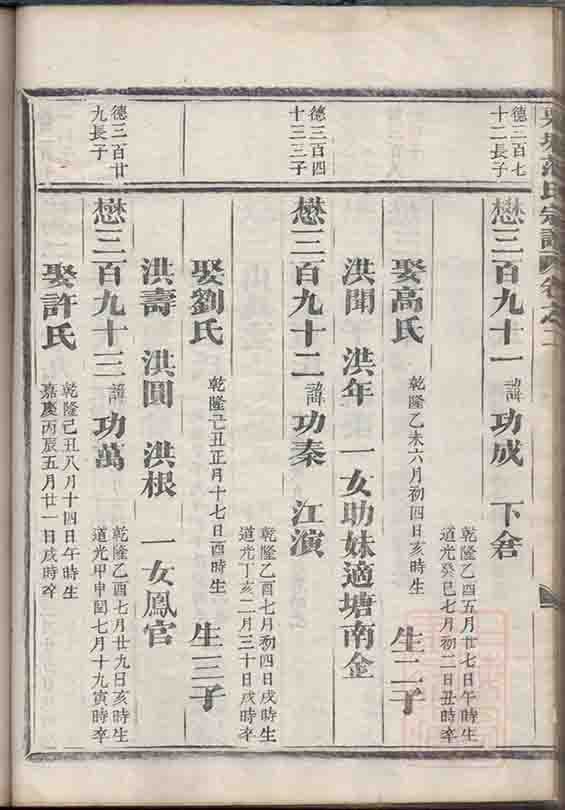 氏宗譜 卷之二
德三百七
十二長子
懋三百九十一 諱 功成 下倉
乾隆乙酉五月廿七日午時生
道光癸巳七月初二日丑時卒
娶高氏 乾隆乙未六月初四日亥時生 生二子
洪聞 洪年 一女助妹適塘南金
德三百四
十三三子
懋三百九十二 諱 功秦 江演
乾隆乙酉七月初四日戌時生
道光丁亥二月三十日戌時卒
娶劉氏 乾隆己丑正月十七日酉時生 生三子
洪壽 洪圓 洪根 一女鳳官
德三百廿
九長子
懋三百九十三 諱 功萬
乾隆乙酉七月廿九日亥時生
道光甲申閏七月十九寅時卒
娶許氏
乾隆己丑八月十四日午時生
嘉慶丙辰五月廿一日戌時卒